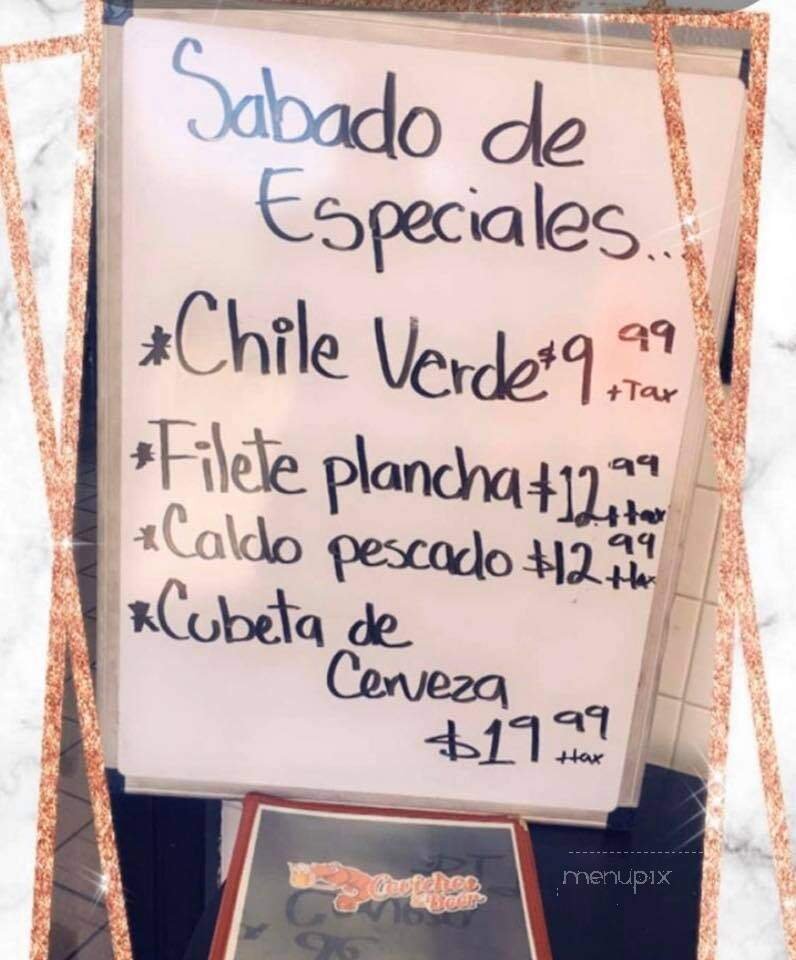 Sabado de
Especiales...
*Chile Verde $9.99
+Tax
*Filete plancha $12.99
++tax
*Caldo pescado $12.99
+tax
*Cubeta de
Cerveza
$19 99
+tax
Ceviches
& Beer
menupix